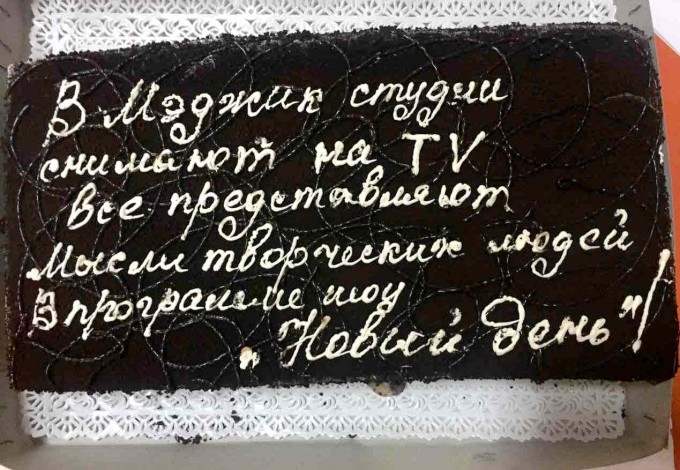 В Мэджик студии
снимают на TV
все представляют
Мысли творческих людей
В программе шоу
„Новый день"!